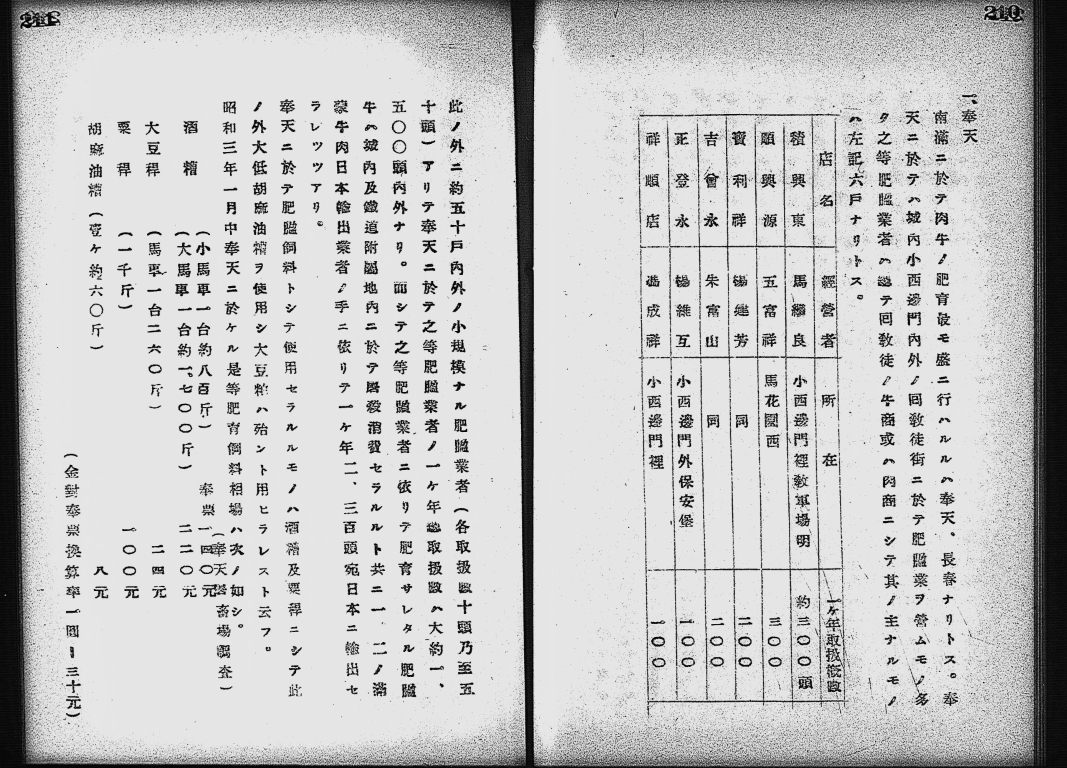 210
一、奉天
南滿ニ於テ肉牛ノ肥育最モ盛ニ行ハルルハ奉天、長春ナリトス。奉
天ニ於テハ城內小西邊門內外ノ回敎徒街ニ於テ肥膃業ヲ營ムモノ多
タ之等肥膃業者ハ總テ回敎徒ノ牛商或ハ肉商ニシテ其ノ主ナルモノ
ハ左記六戶ナリトス。
店名 經營者 所在 一ケ年取扱槪數
積興東 馬繼良 小西邊門裡敎軍場明 約三〇〇頭
順興源 五富祥 馬花園西 三〇〇
寶利祥 楊建芳 同 二〇〇
吉會永 朱富山 同 二〇〇
正登永 楊維互 小西邊門外保安堡 一〇〇
祥順店 馮成祥 小西邊門裡 一〇〇
211
此ノ外ニ約五十戶內外ノ小規模ナル肥膃業者(各取扱數十頭乃至五
十頭)アリテ奉天ニ於テ之等肥膃業者ノ一ケ年總取扱數ハ大約一、
五〇〇頭內外ナリ。而シテ之等肥膃業者ニ依リテ肥育サレタル肥膃
牛ハ城內及鐵道附屬地內ニ於テ屠殺消費セラルルト共ニ一、二ノ滿
蒙牛肉日本輸出業者ノ手ニ依リテ一ケ年二、三百頭宛日本ニ輸出セ
ラレツツアリ。
奉天ニ於テ肥膃飼料トシテ使用セラルルモノハ酒糟及粟稈ニシテ此
ノ外大低胡麻油糟ヲ使用シ大豆粕ハ殆ント用ヒラレスト云フ。
昭和三年一月中奉天ニ於ケル是等肥育飼料相場ハ次ノ如シ。
(奉天 畜場調査)
酒糟 (小馬車一台約八百斤) 奉票一四〇元
(大馬車一台約一、七〇〇斤) 二二〇元
大豆稈 (馬車一台二六〇斤) 二四元
粟稈 (一千斤) 一〇〇元
胡麻油糟 (壹ケ約六〇斤) 八元
(金對奉票換算率一圓ー三十元)